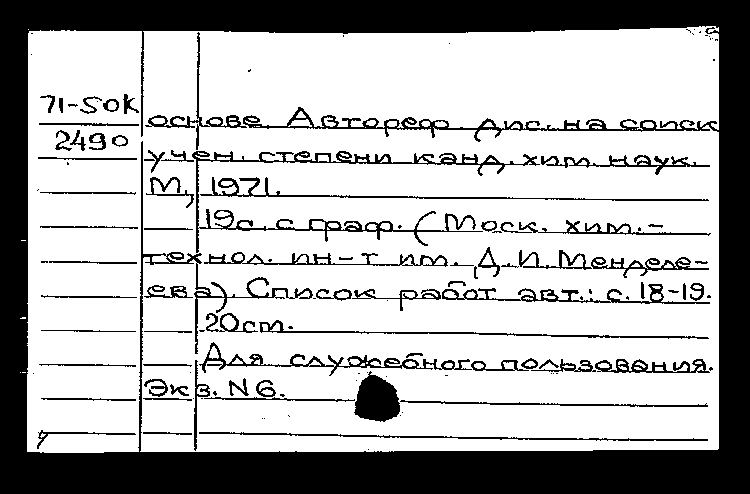 71-50К
2490
основе. Автореф. дис. на соиск
учен. степени канд. хим. наук.
М., 1971.
19с. с граф. (Моск. хим.-
технол. ин-т им. Д. И. Менделе-
ева). Список работ авт.: с. 18-19.
20cm.
Для служебного пользования.
Экз. N 6.